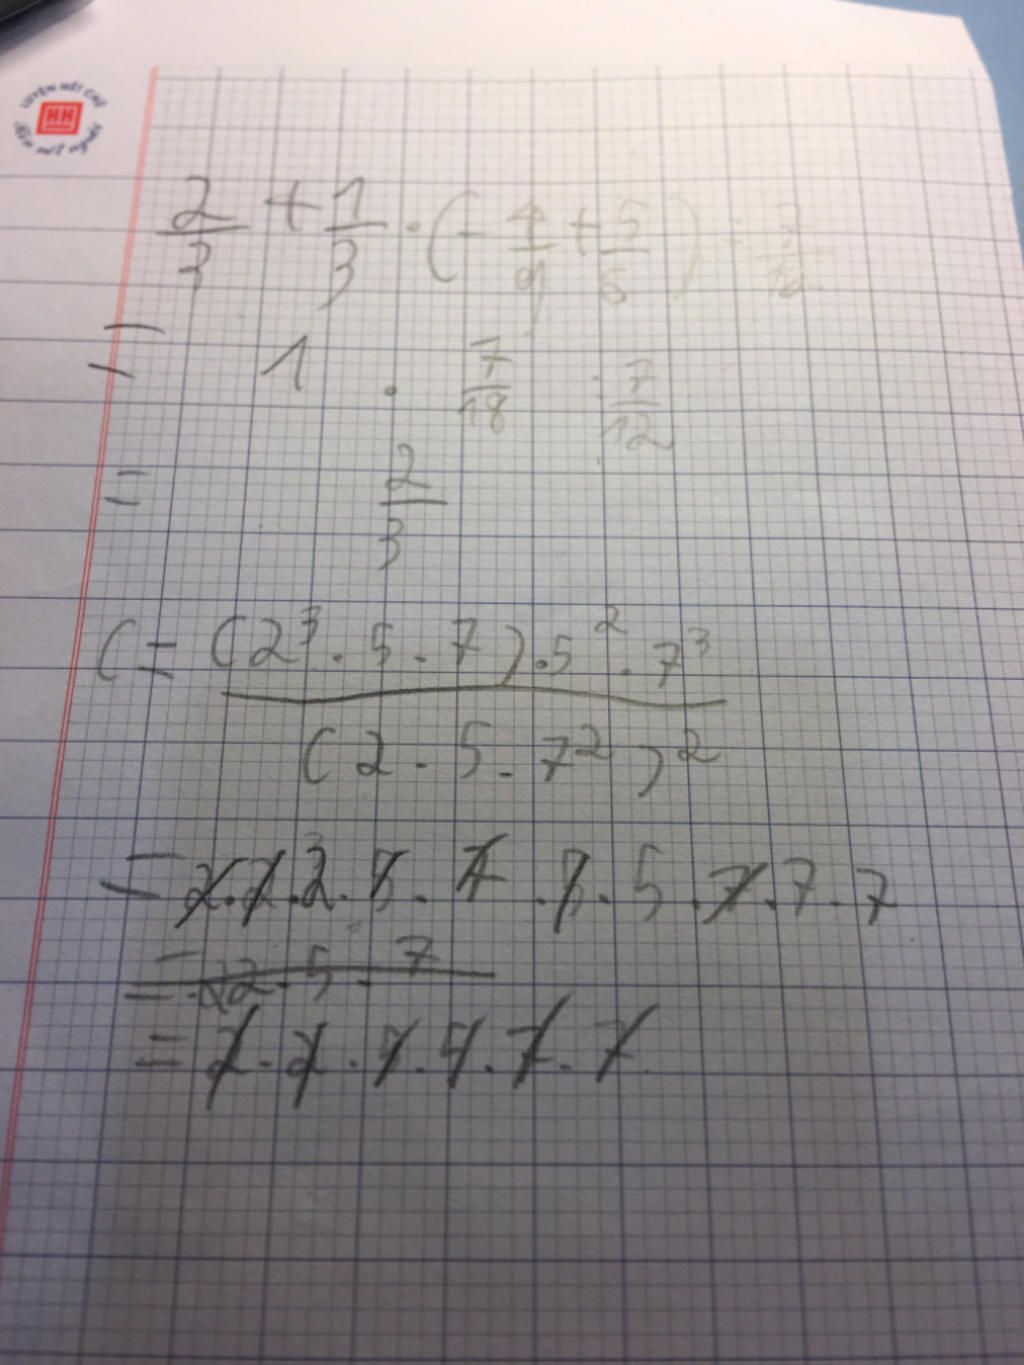 LUYỆN NÉT CHỮ
Rèn nết người
HH
2/3 + 1/3 · (- 4/9 + 5/6) : 7/12
= 1 . 7/18 : 7/12
= 2/3
C = (2³ . 5 . 7) . 5² . 7³
(2 . 5 . 7²)²
= 2 . 2 . 2 . 5 . 7 . 5 . 5 . 7 . 7 . 7
= 2 . 5 . 7
= 2 . 2 . 5 . 5 . 7 . 7